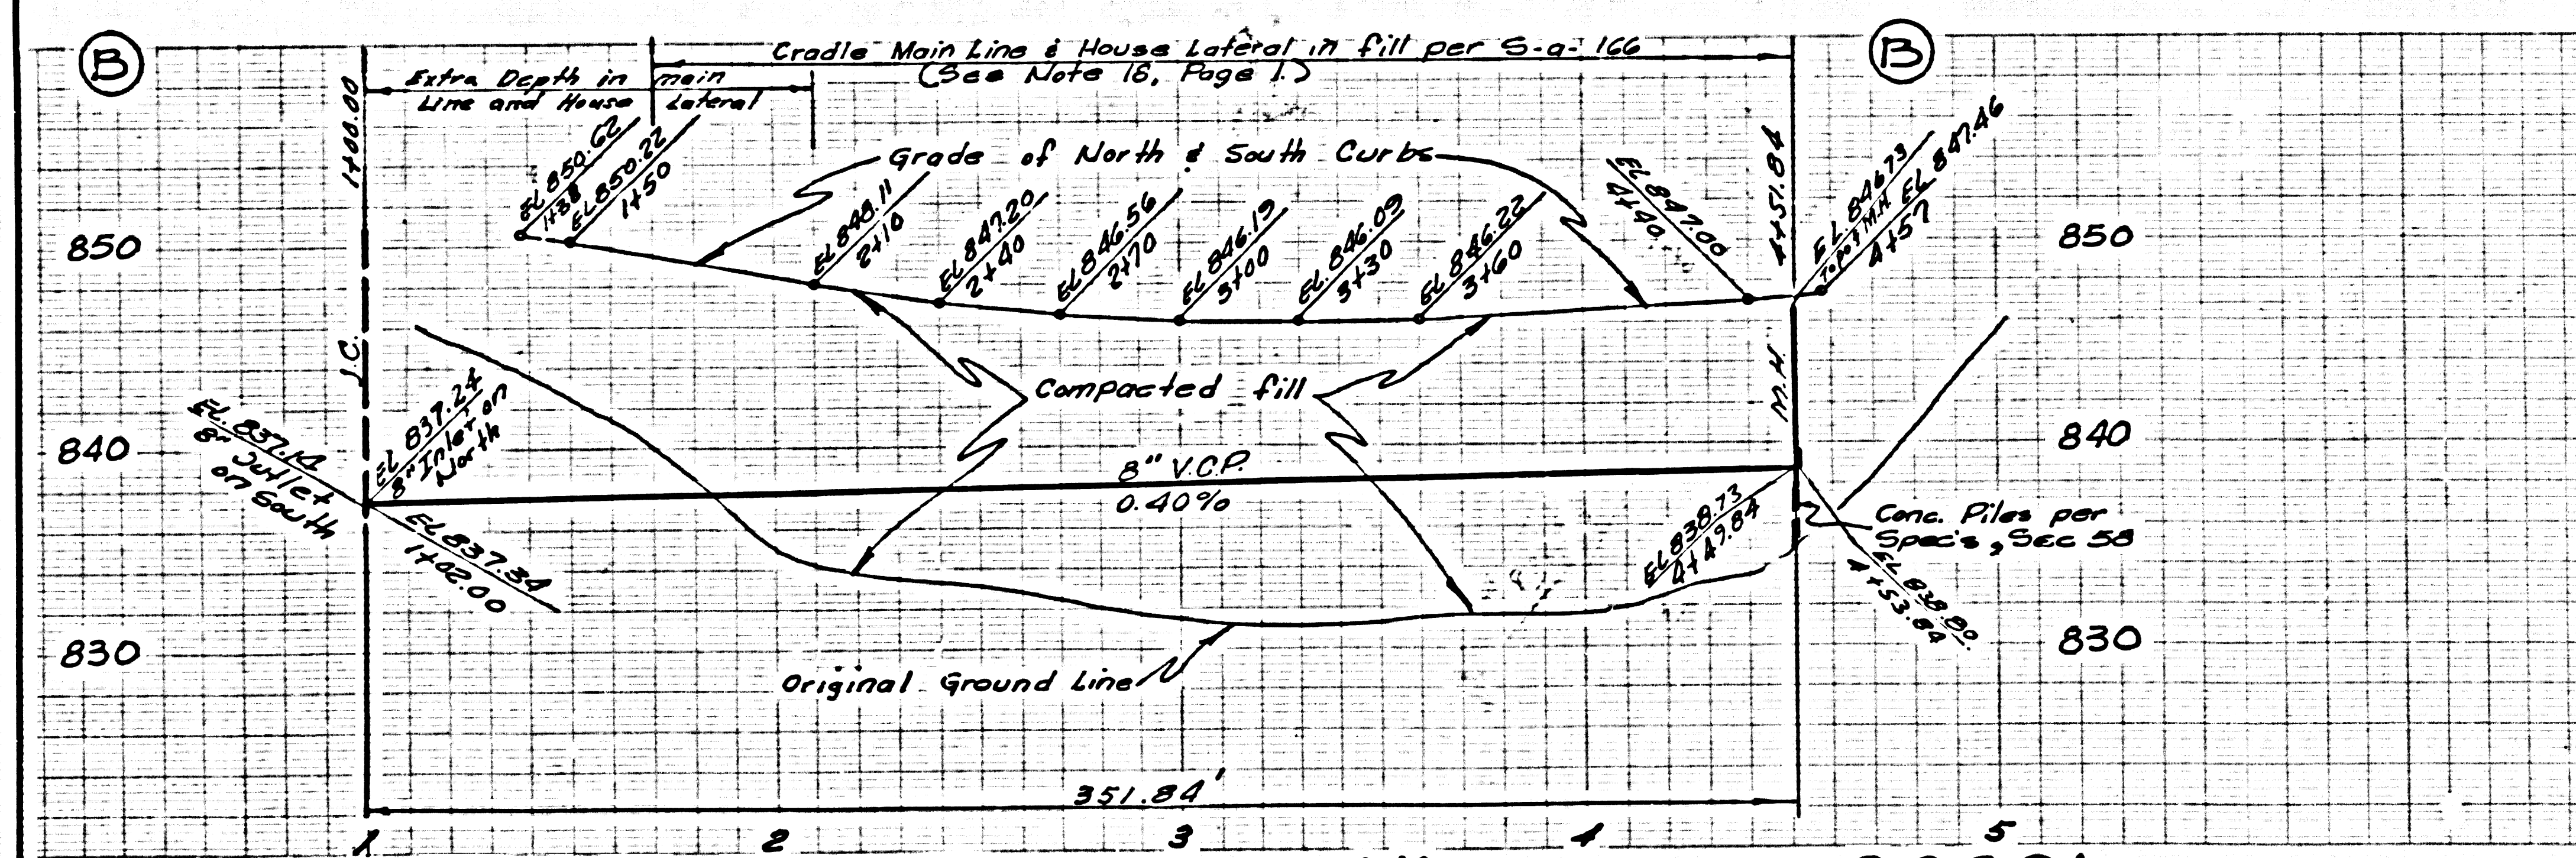 B
Cradle Main Line & House Lateral in fill per S-a-166
(See Note 18, Page 1.)
B
Extra Depth in main
Line and House Lateral
1+00.00
EL 850.62
1+38
EL 850.22
1+50
Grade of North & South Curbs
EL 848.11
2+10
EL 847.20
2+40
EL 846.56
2+70
EL 846.19
3+00
EL. 846.09
3+30
EL 846.22
3+60
EL 847.00
4+40
4+51.84
EL. 846.73
Top of M.H. EL 847.46
4+57
850
850
J.C.
M.H.
Compacted fill
EL. 837.14
8" Outlet
on South
EL 837.24
8" Inlet on
North
840
840
8" V.C.P.
0.40%
EL 837.34
1+02.00
EL 838.73
4+49.84
Conc. Piles per
Spec's, Sec 58
EL 838.80
4+53.84
830
830
Original Ground Line
351.84'
1
2
3
4
5